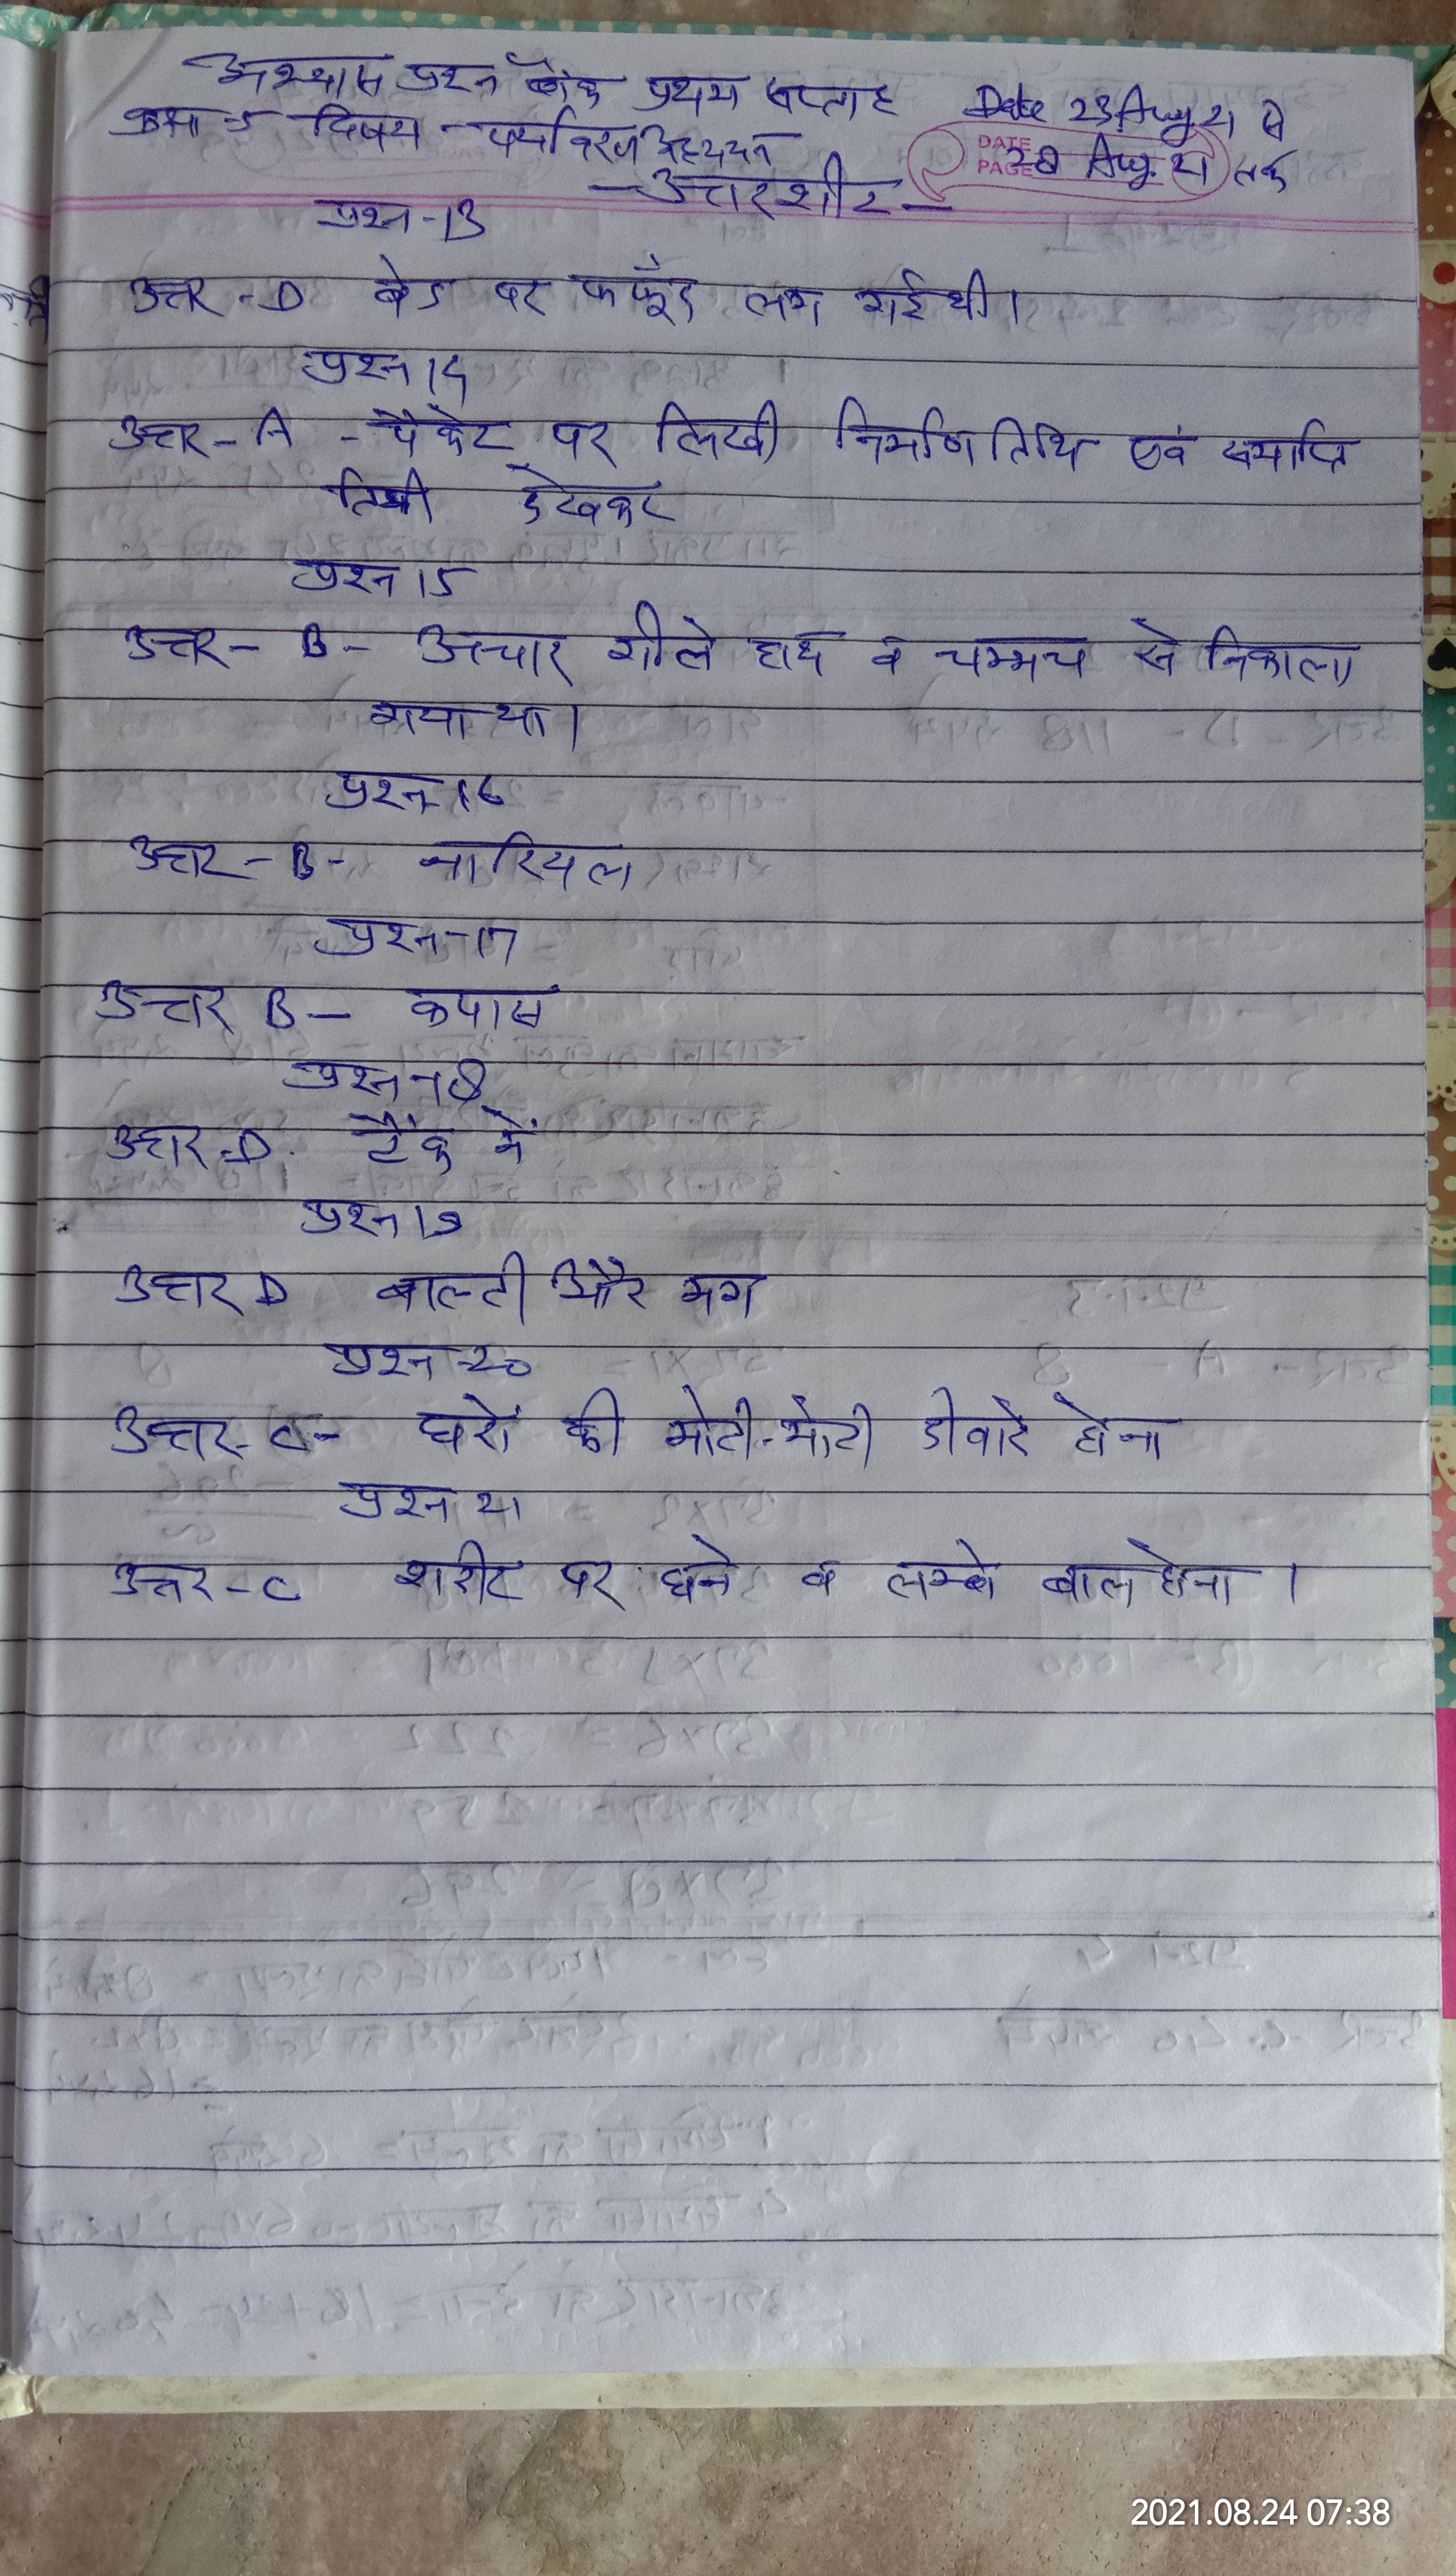 अभ्यास प्रश्न बैंक प्रथम सप्ताह Date 23 Aug 21 से
कक्षा 5 विषय - पर्यावरण अध्ययन 28 Aug. 21 तक
DATE
PAGE
- उत्तरशीट -
प्रश्न - 13
उत्तर - D ब्रेड पर फफूँद लग गई थी।
प्रश्न 14
उत्तर - A - पैकेट पर लिखी निर्माण तिथि एवं समाप्ति
तिथी देखकर
प्रश्न 15
उत्तर - B - अचार गीले हाथ व चम्मच से निकाला
गया था।
प्रश्न 16
उत्तर - B - नारियल
प्रश्न - 17
उत्तर B - कपास
प्रश्न - 18
उत्तर - D. टैंक में
प्रश्न 19
उत्तर D बाल्टी और मग
प्रश्न 20
उत्तर - C - घरों की मोटी-मोटी दीवारे होना
प्रश्न 21
उत्तर - C शरीर पर घने व लम्बे बाल होना।
2021.08.24 07:38